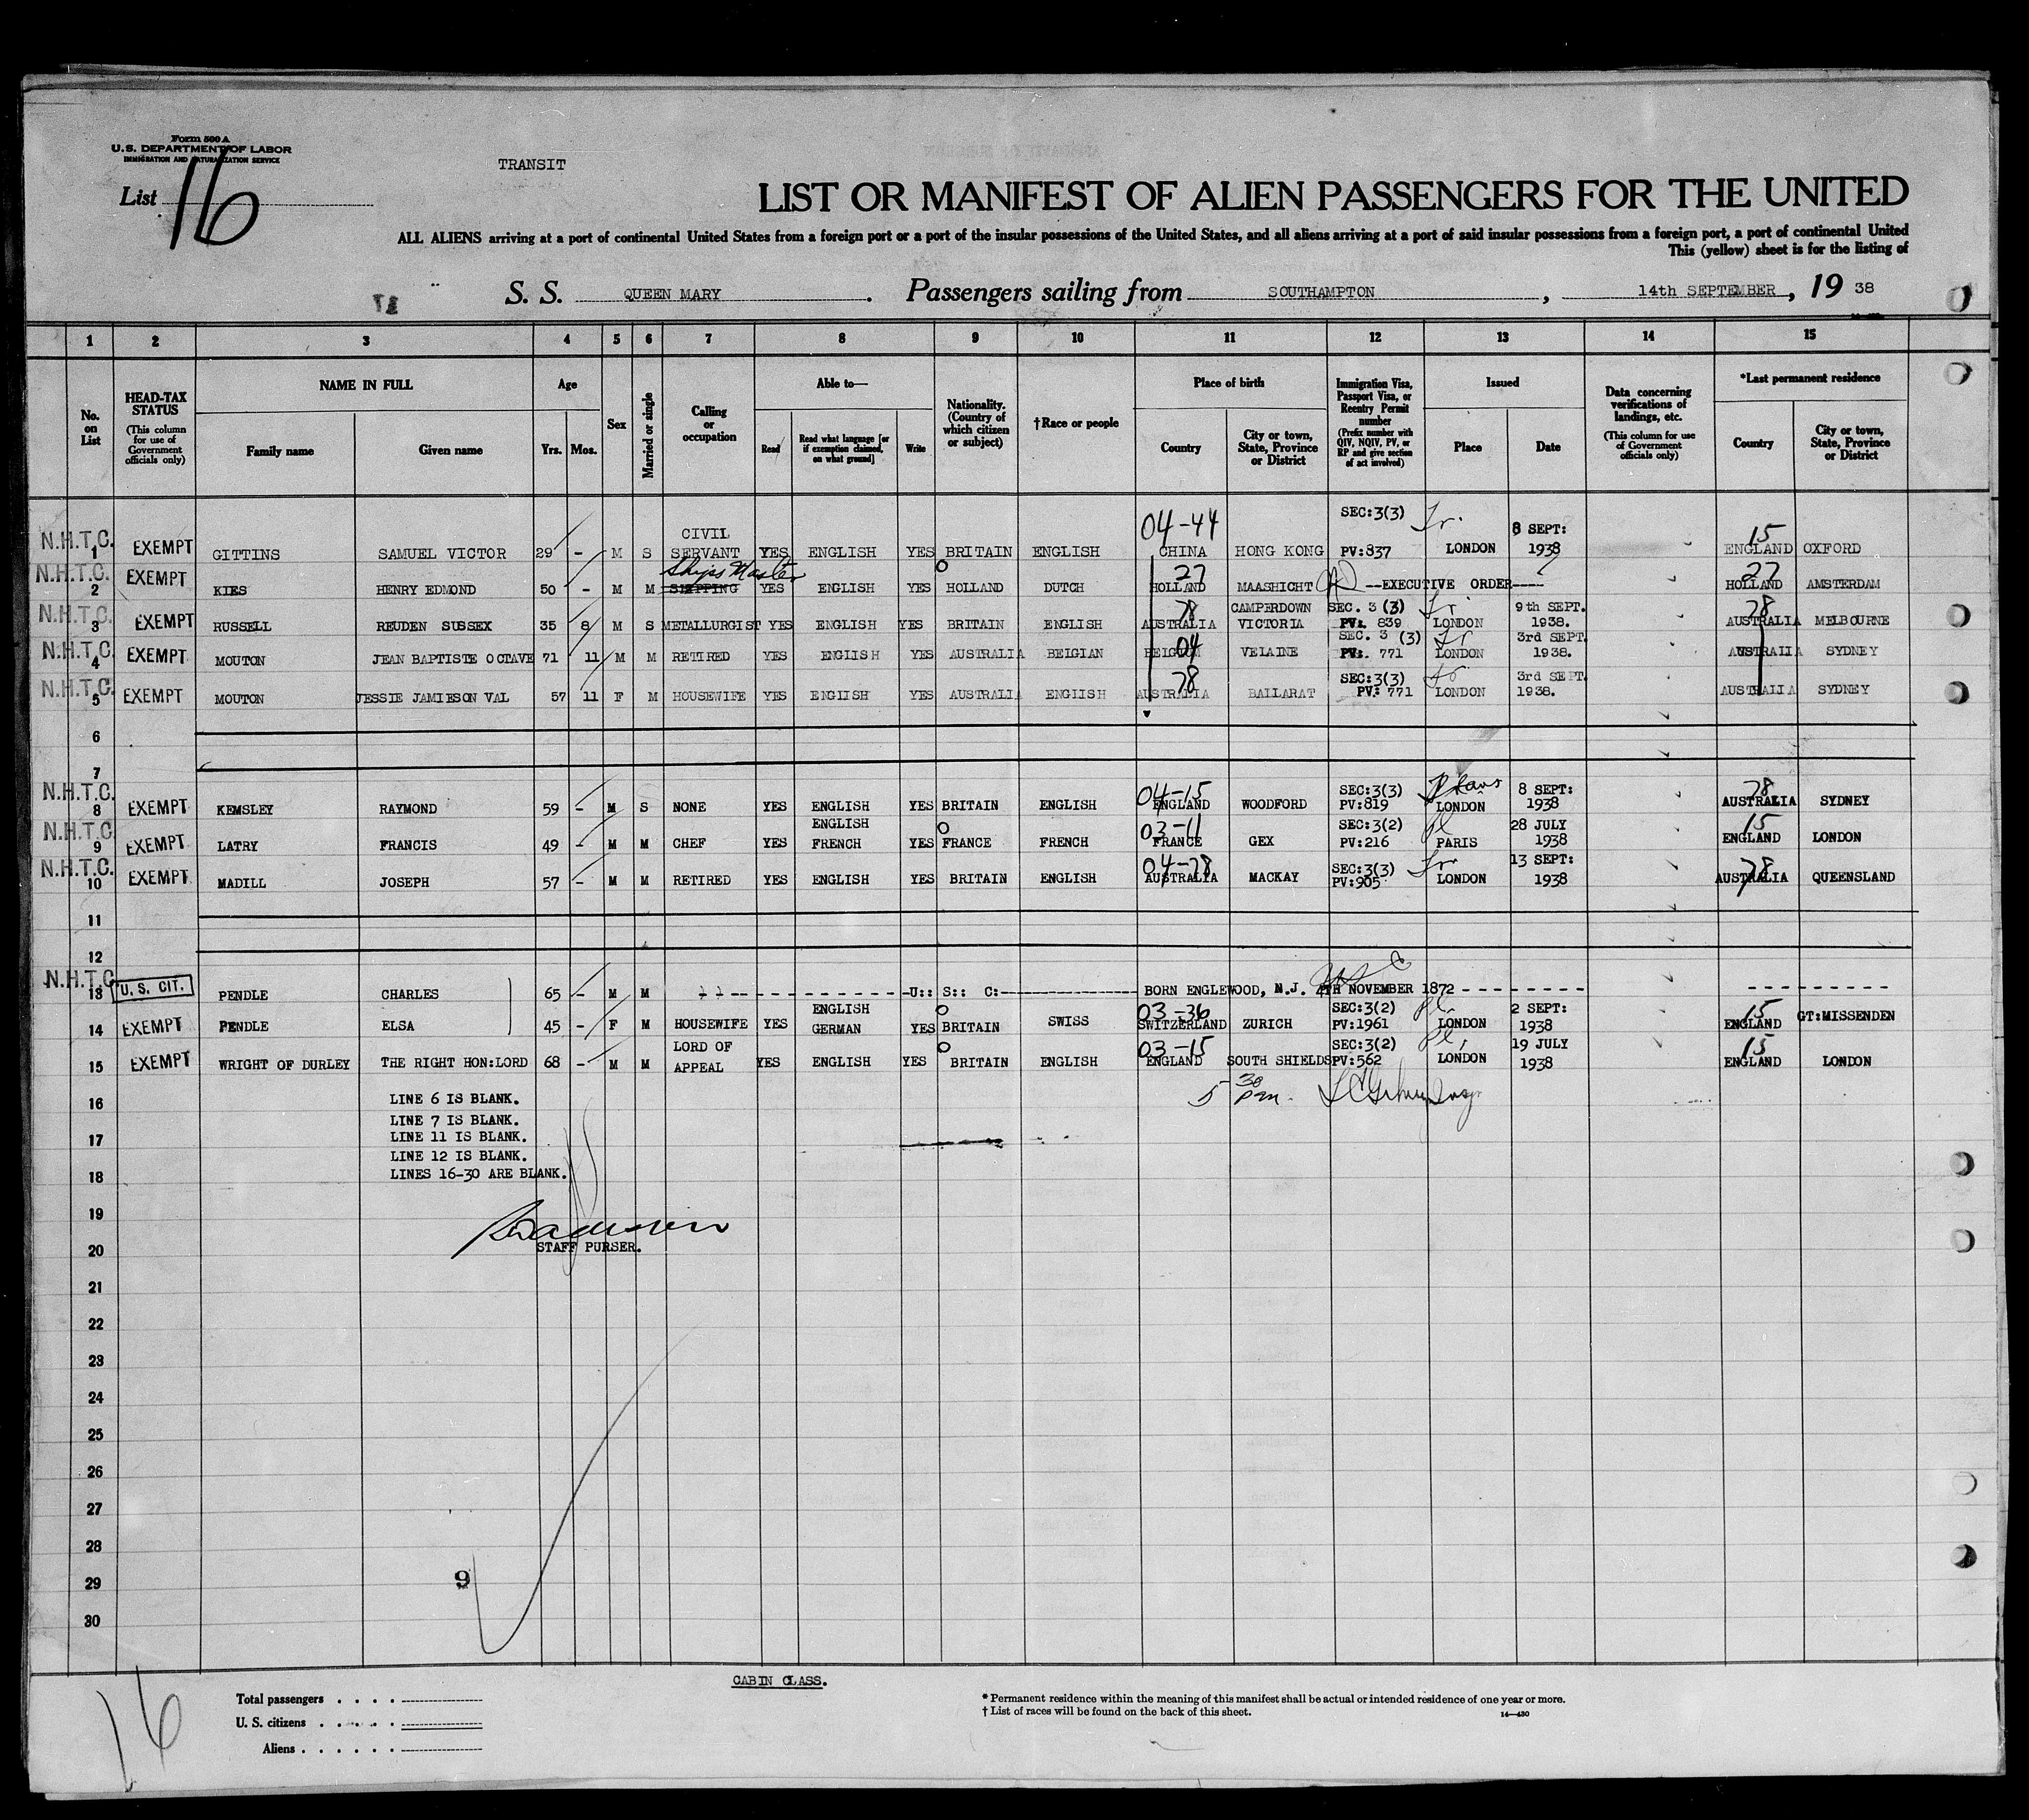 Form 500 A
U.S. DEPARTMENT OF LABOR
IMMIGRATION AND NATURALIZATION SERVICE
TRANSIT
List 16
LIST OR MANIFEST OF ALIEN PASSENGERS FOR THE UNITED
ALL ALIENS arriving at a port of continental United States from a foreign port or a port of the insular possessions of the United States, and all aliens arriving at a port of said insular possessions from a foreign port, a port of continental United
This (yellow) sheet is for the listing of
S. S. QUEEN MARY . Passengers sailing from SOUTHAMPTON , 14th SEPTEMBER , 19 38
1 2 3 4 5 6 7 8 9 10 11 12 13 14 15
No. on List
HEAD-TAX STATUS (This column for use of Government officials only)
NAME IN FULL Family name Given name
Age Yrs. Mos.
Sex
Married or single
Calling or occupation
Able to— Read Read what language [or if exemption claimed, on what ground] Write
Nationality. (Country of which citizen or subject)
†Race or people
Place of birth Country City or town, State, Province or District
Immigration Visa, Passport Visa, or Reentry Permit number (Prefix number with QIV, NQIV, PV, or RP and give section of act involved)
Issued Place Date
Data concerning verifications of landings, etc. (This column for use of Government officials only)
*Last permanent residence Country City or town, State, Province or District
N.H.T.C. 1 EXEMPT GITTINS SAMUEL VICTOR 29 - M S CIVIL SERVANT YES ENGLISH YES BRITAIN ENGLISH 04-44 CHINA HONG KONG SEC:3(3) PV:837 Tr. LONDON 8 SEPT: 1938 15 ENGLAND OXFORD
N.H.T.C. 2 EXEMPT KIES HENRY EDMOND 50 - M M SHIPPING Ships Master YES ENGLISH YES HOLLAND DUTCH 27 HOLLAND MAASHICHT --EXECUTIVE ORDER---- 27 HOLLAND AMSTERDAM
N.H.T.C. 3 EXEMPT RUSSELL REUDEN SUSSEX 35 8 M S METALLURGIST YES ENGLISH YES BRITAIN ENGLISH 78 AUSTRALIA CAMPERDOWN VICTORIA SEC. 3 (3) PV. 839 Tr LONDON 9th SEPT. 1938. 78 AUSTRALIA MELBOURNE
N.H.T.C. 4 EXEMPT MOUTON JEAN BAPTISTE OCTAVE 71 11 M M RETIRED YES ENGLISH YES AUSTRALIA BELGIAN 04 BELGIUM VELAINE SEC. 3 (3) PV: 771 Tr LONDON 3rd SEPT. 1938. AUSTRALIA SYDNEY
N.H.T.C. 5 EXEMPT MOUTON JESSIE JAMIESON VAL 57 11 F M HOUSEWIFE YES ENGLISH YES AUSTRALIA ENGLISH 78 AUSTRALIA BALLARAT SEC:3(3) PV: 771 LONDON 3rd SEPT. 1938. AUSTRALIA SYDNEY
6
7
N.H.T.C. 8 EXEMPT KEMSLEY RAYMOND 59 - M S NONE YES ENGLISH YES BRITAIN ENGLISH 04-15 ENGLAND WOODFORD SEC:3(3) PV:819 LONDON 8 SEPT: 1938 78 AUSTRALIA SYDNEY
N.H.T.C. 9 EXEMPT LATRY FRANCIS 49 - M M CHEF YES ENGLISH FRENCH YES FRANCE FRENCH 03-11 FRANCE GEX SEC:3(2) PV:216 Pl PARIS 28 JULY 1938 15 ENGLAND LONDON
N.H.T.C. 10 EXEMPT MADILL JOSEPH 57 - M M RETIRED YES ENGLISH YES BRITAIN ENGLISH 04-78 AUSTRALIA MACKAY SEC:3(3) PV:905 Tr LONDON 13 SEPT: 1938 78 AUSTRALIA QUEENSLAND
11
12
N.H.T.C. 13 U. S. CIT. PENDLE CHARLES 65 - M M U:: S:: C: BORN ENGLEWOOD, N.J. 4TH NOVEMBER 1872
14 EXEMPT PENDLE ELSA 45 - F M HOUSEWIFE YES ENGLISH GERMAN YES BRITAIN SWISS 03-36 SWITZERLAND ZURICH SEC:3(2) PV:1961 Pl. LONDON 2 SEPT: 1938 15 ENGLAND GT:MISSENDEN
15 EXEMPT WRIGHT OF DURLEY THE RIGHT HON:LORD 68 - M M LORD OF APPEAL YES ENGLISH YES BRITAIN ENGLISH 03-15 ENGLAND SOUTH SHIELDS SEC:3(2) PV:562 Pl. LONDON 19 JULY 1938 15 ENGLAND LONDON
5 30 pm.
16 LINE 6 IS BLANK.
LINE 7 IS BLANK.
17 LINE 11 IS BLANK.
LINE 12 IS BLANK.
18 LINES 16-30 ARE BLANK.
19
20 STAFF PURSER.
21
22
23
24
25
26
27
28
29 9
30
CABIN CLASS.
16
Total passengers . . . .
U. S. citizens . . . . . .
Aliens . . . . . .
* Permanent residence within the meaning of this manifest shall be actual or intended residence of one year or more.
† List of races will be found on the back of this sheet.
14—430